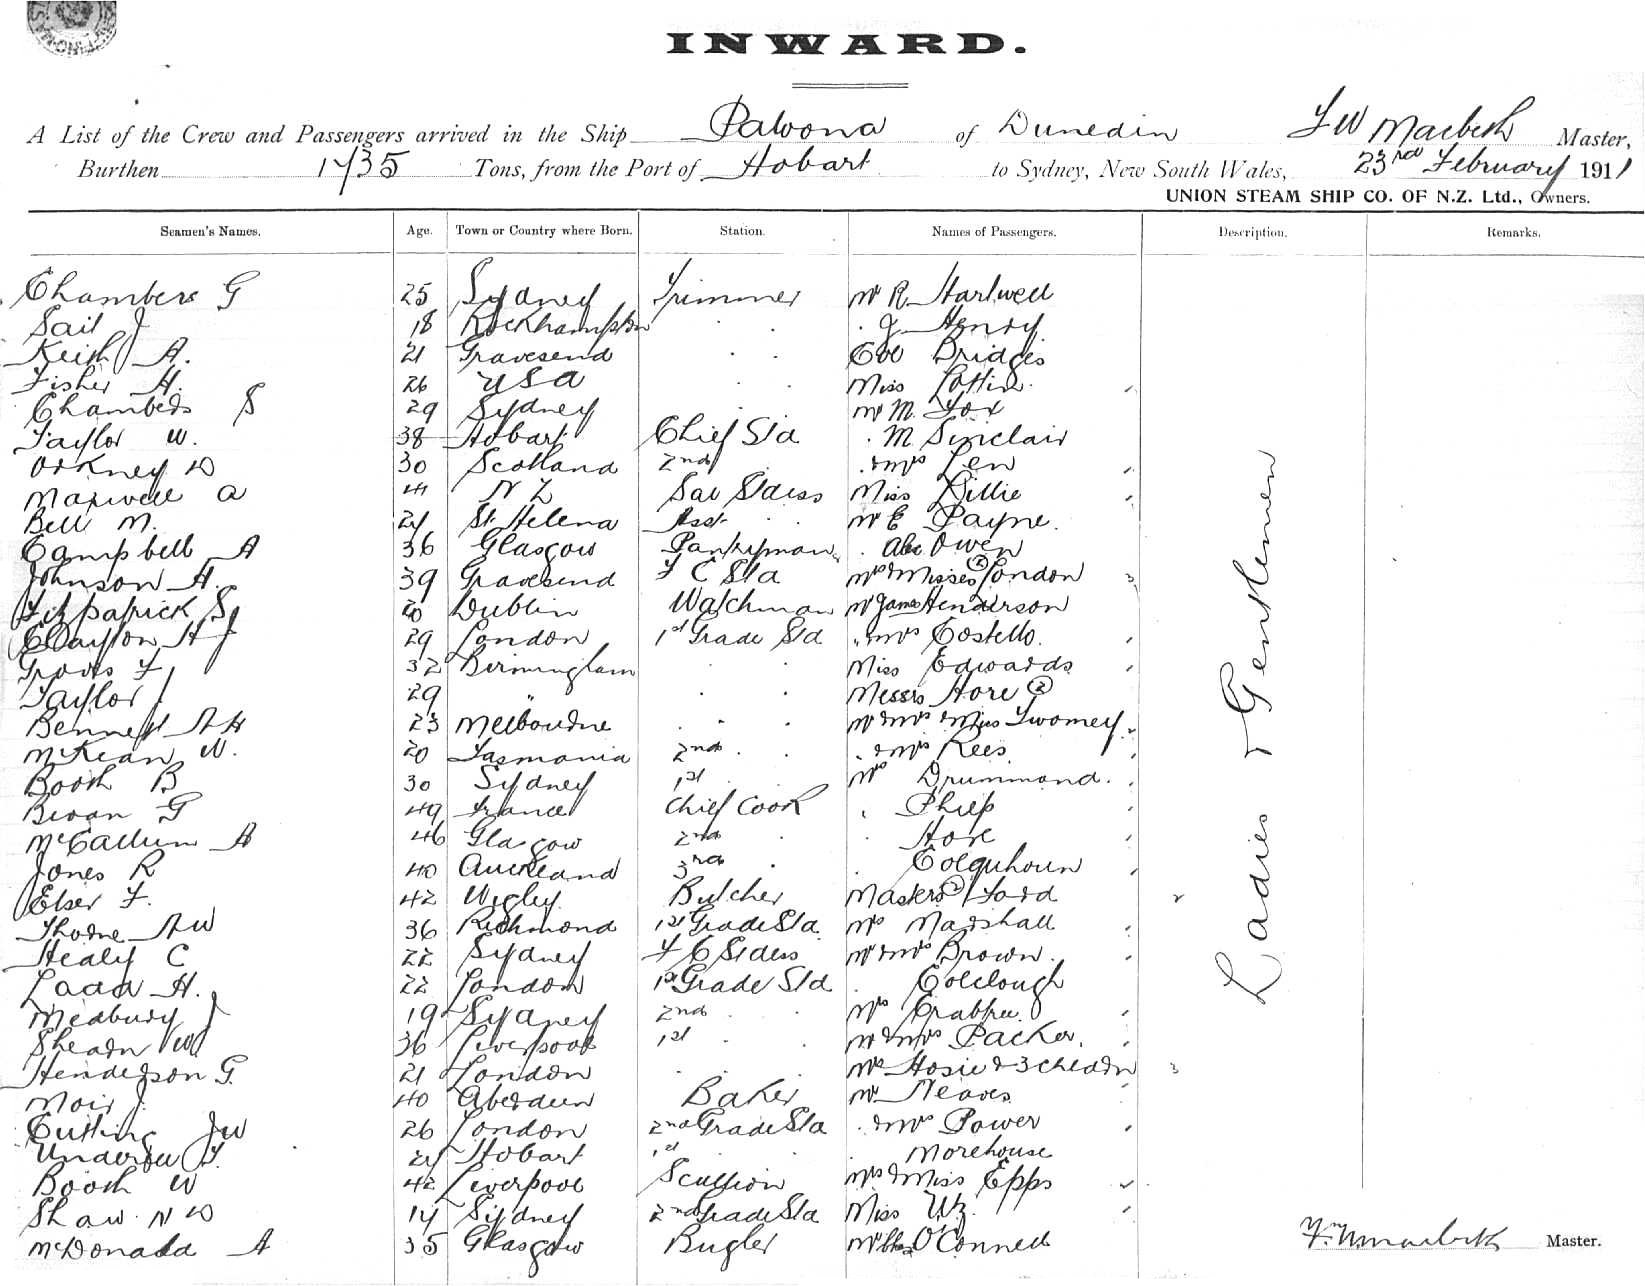 INWARD.
A List of the Crew and Passengers arrived in the Ship Paloona of Dunedin F W Macbeth Master,
Burthen 1735 Tons, from the Port of Hobart to Sydney, New South Wales, 23rd February 1911
UNION STEAM SHIP CO. OF N.Z. Ltd., Owners.
Seamen's Names. Age. Town or Country where Born. Station. Names of Passengers. Description. Remarks.
Chambers G 25 Sydney Trimmer Mr R Hartwell
Sail J 18 Rockhampton . . . J Henry
Keith A. 21 Gravesend . . Bridges
Fisher H. 26 USA . . Miss
Chambers S 29 Sydney Mr M. Fox
Taylor W. 38 Hobart Chief Std . M Sinclair
Orkney D 30 Scotland 2nd . & Mrs Len
Maxwell A 41 N Z Sal Stdess Miss Lillie
Bell M. St Helena Asst . . Mr E Payne.
Campbell A 36 Glasgow Pantryman . Owen
Johnson H. 39 Gravesend F C Std Mrs & Misses (2) London 3
Fitzpatrick S 20 Dublin Watchman Mr James Henderson
Clayton H J 29 London 1st Grade Std . & Mrs Costello.
Groves F 32 Birmingham . . Miss Edwards
Taylor J 29 " . . Messrs Hore (2)
Bennett A H 23 Melbourne . . Mr & Mrs & Miss Twomey
McKean W. 20 Tasmania 2nd . . . & Mrs Rees
Booth B 30 Sydney 1st Mrs Drummond.
Bevan G 49 France Chief Cook .
McCallum A 46 Glasgow 2nd . . Hore
Jones R 40 Auckland 3rd . . Colquhoun
Elser F. 42 Wigley Butcher Masters (2) Ford
Thorne A W 36 Richmond 1st Grade Std Mrs Marshall
Healy C 22 Sydney F C Stdess Mr & Mrs Brown.
Ladd H. 22 London 1st Grade Std . Colclough
Medbury J 19 Sydney 2nd . Mrs Crabtree
Shearn W 36 Liverpool 1st . Mr & Mrs Packer.
Henderson G. 21 London . . Mrs Hosie & 3 children 3
Moir J. 40 Aberdeen Baker Mr Neaves
Cutting J W 26 London 2nd Grade Std . & Mrs Power
Hobart 1st . . Morehouse
Booth W 42 Liverpool Scullion Mrs & Miss Epps
Shaw N D Sydney 2nd Grade Std Miss
McDonald A 35 Glasgow Bugler Mr O'Connell
Ladies & Gentlemen
Master.